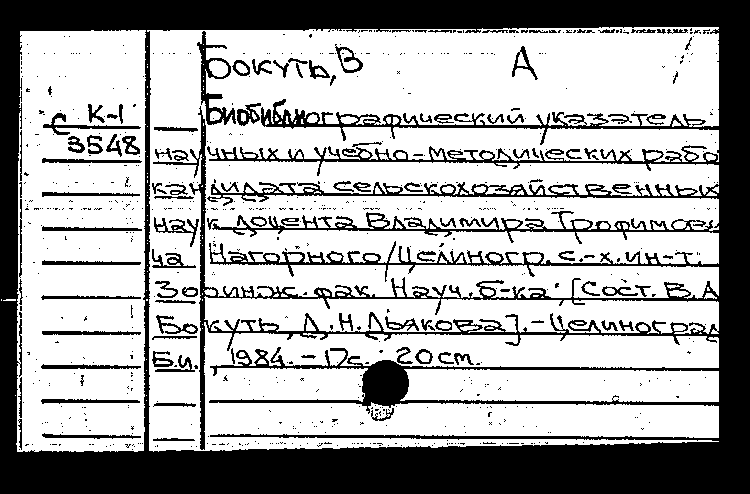 Бокуть, В А
С К-1
3548
Библиографический указатель
научных и учебно-методических рабо
кандидата сельскохозяйственных
наук доцента Владимира Трофимови
ча Нагорного / Целиногр. с.-х. ин-т.
Зооинж. фак. Науч. б-ка; [Сост. В.А
Бокуть, Д.Н. Дьякова].-Целиноград
Б.и., 1984. - 17с.; 20 cm.